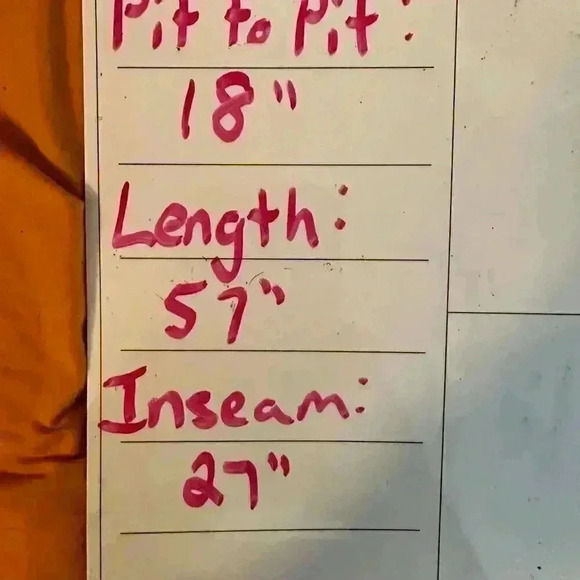 Pit to Pit:
18"
Length:
57"
Inseam:
27"